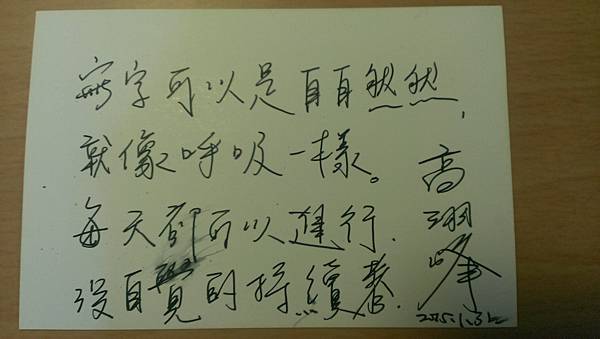 寫字可以是自自然然，
就像呼吸一樣。
每天都可以進行．
沒自覺的持續著．
高翊峰
2015.1.31